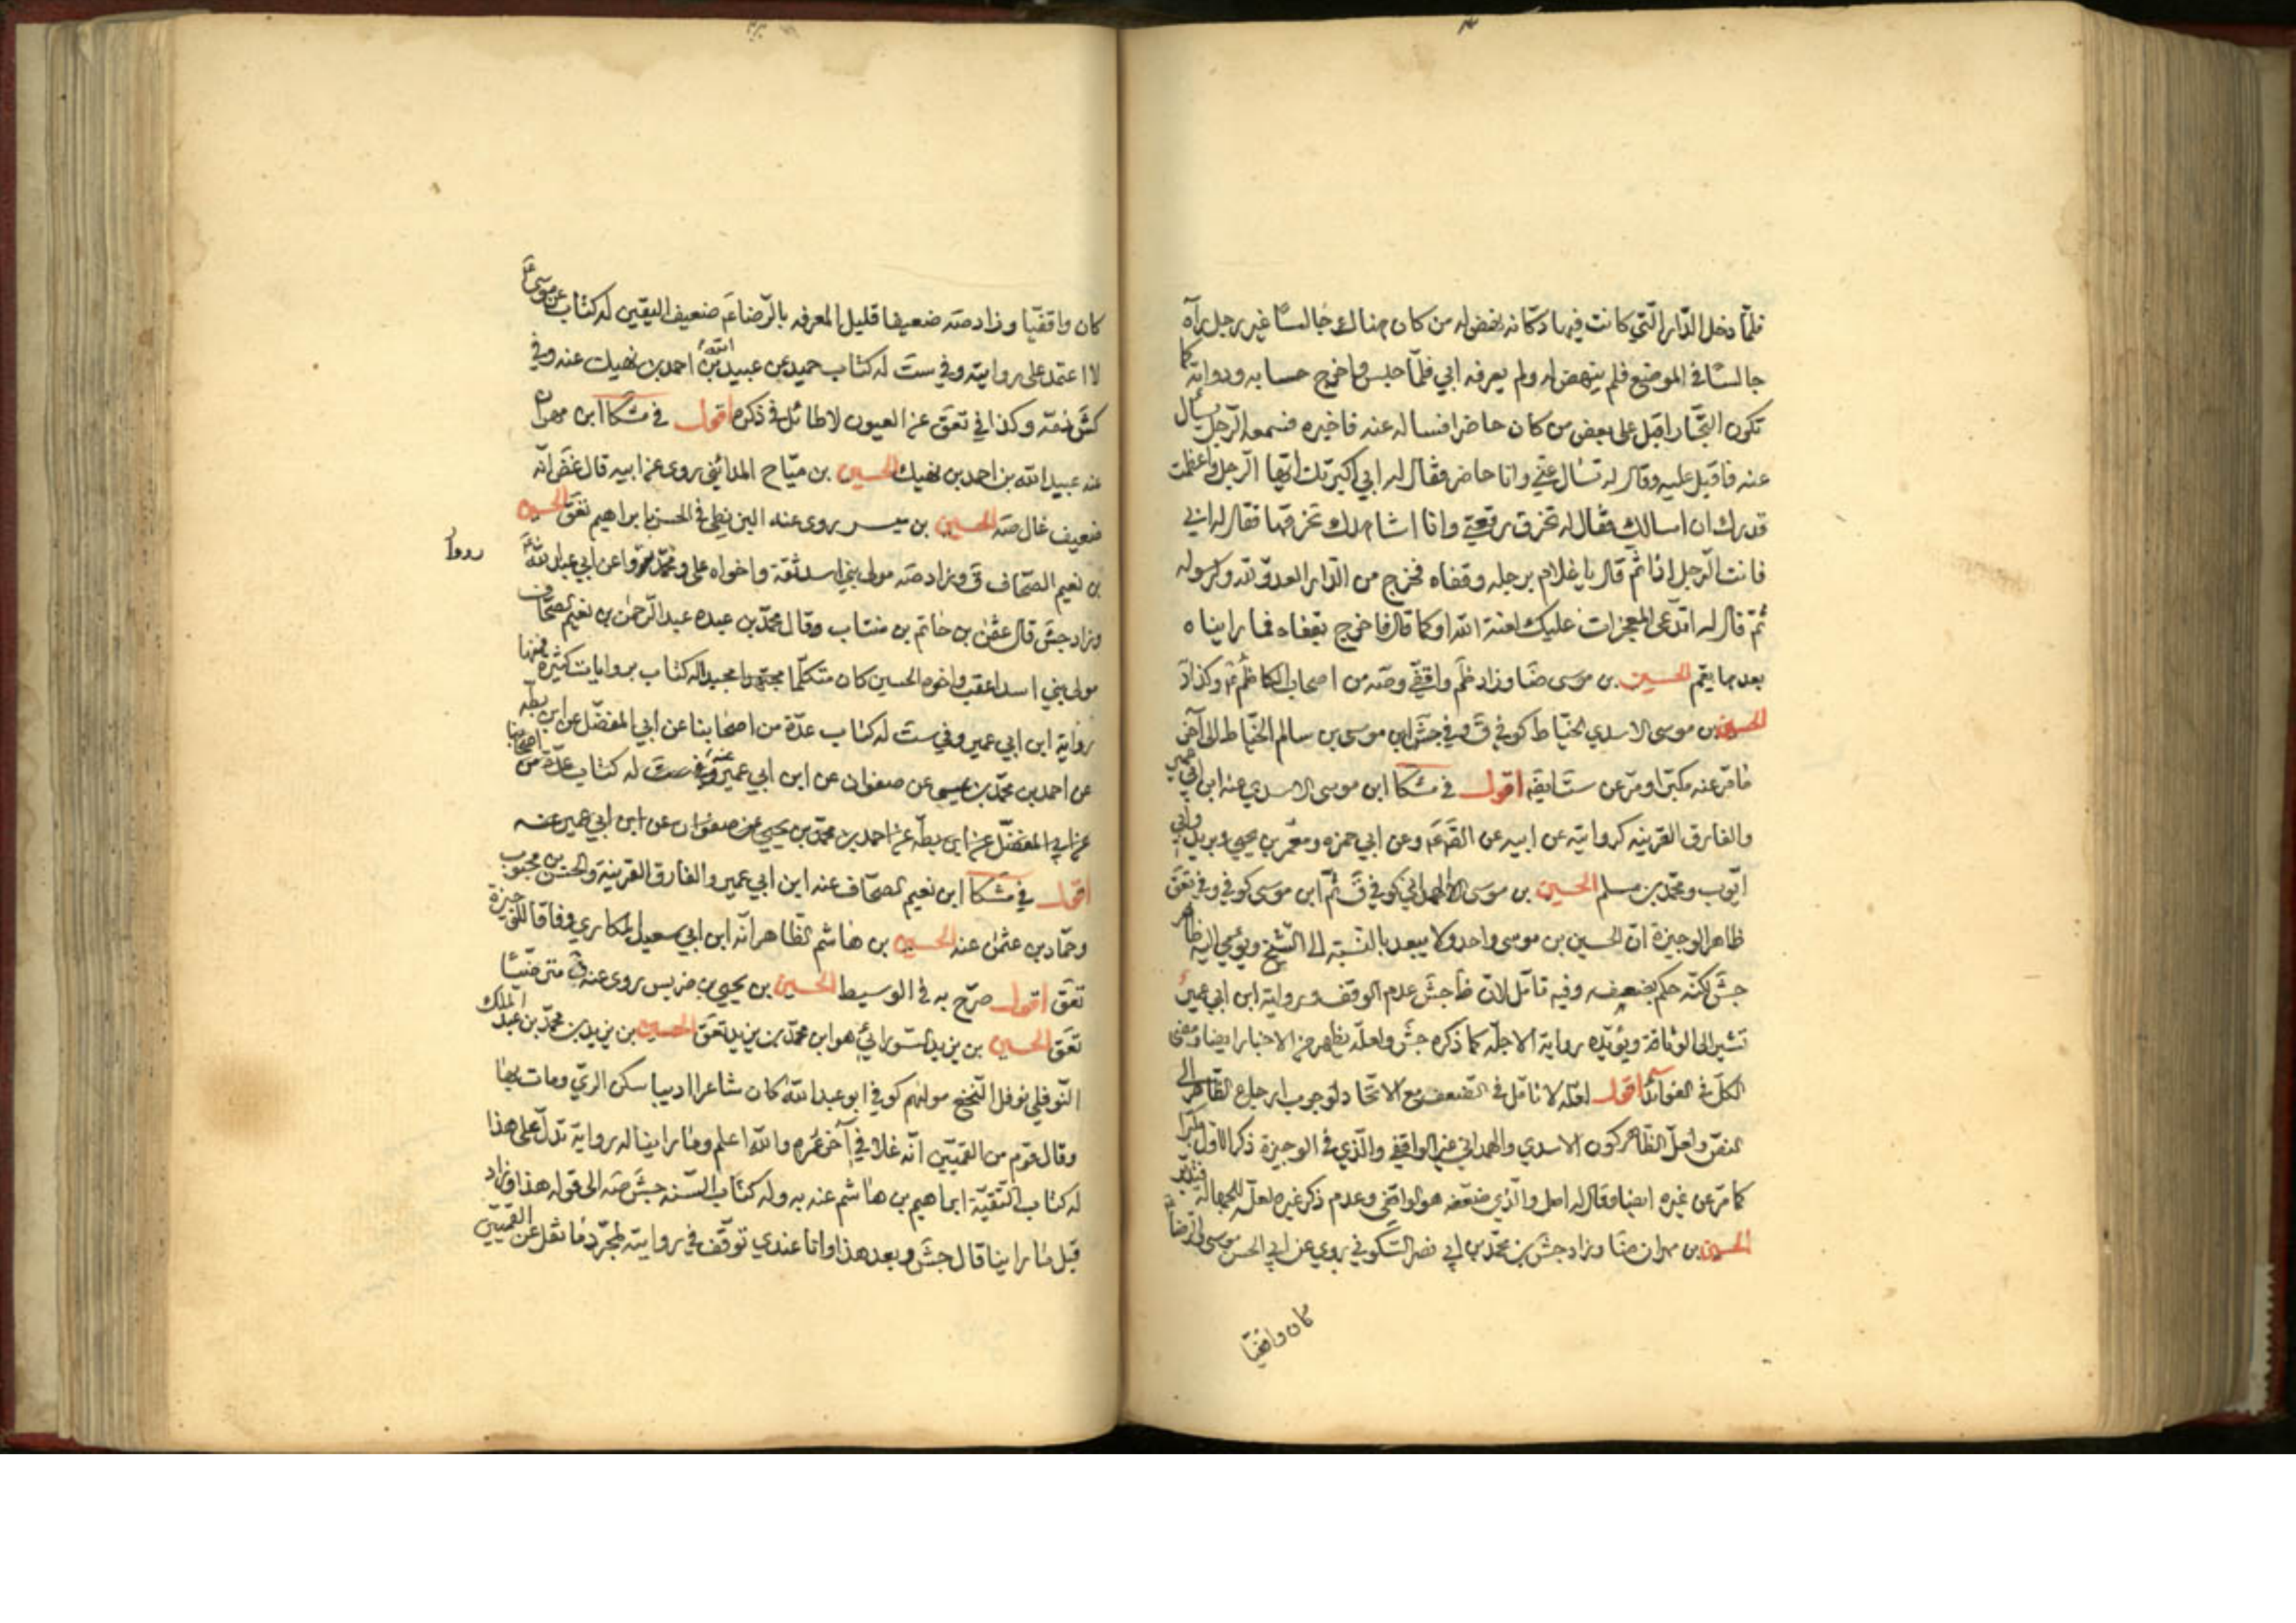 فلمّا دخل الدّار الّتي كانت فيها دكّانه نهض له من كان هناك جالسًا غير رجل رآه
جالسًا في الموضع فلم ينهض له ولم يعرفه ابي فلمّا جلس واخرج حسابه ودواته كما
تكون التجّار اقبل على بعض من كان حاضرا فساله عنه فاخبره فسمعه الرّجل يسأل
عنه فاقبل عليه وقال له تسأل عنّي وانا حاضر فقال له ابي اكبرتك ايّها الرّجل واعظمت
قدرك ان اسالك فقال له تخرق رقعتي وانا اشاهدك تخرقها فقال له ابي
فانت الرّجل اذًا ثمّ قال يا غلام برجله وقفاه فخرج من الدّار العدوّ لله ولرسوله
ثمّ قال له اتدّعي المعجزات عليك لعنة الله او كما قال فاخرج بقفاه فما رايناه
بعدها بقم الحسين بن موسى ضا وزاد ظم واقفي وصه من اصحاب الكاظم ع وكذا د
الحسين بن موسى الاسدي الخيّاط كوفي ق وفي جش ابن موسى بن سالم الخيّاط الى آخر
ما مرّ عنه مكبّرا ومرّ عن ست ايضه اقول في مشكا ابن موسى الاسدي عنه ابن ابي عمير
والفارق القرينه كروايته عن ابيه عن الص ع وعن ابي حمزه ومعمر بن يحيى وبريد وابي
ايّوب ومحمّد بن مسلم الحسين بن موسى الهمداني كوفي ق ثمّ ابن موسى كوفي وفي تعق
ظاهر الوجيزة انّ الحسين بن موسى واحد ولا يبعد بالنسبة الى الشّيخ ويؤمي اليه ظاهر
جش لكنّه حكم بضعفه وفيه تامّل لانّ ظاجش عدم الوقف ورواية ابن ابي عمير
تشير الى الوثاقة ويؤيّده رواية الاجلّه كما ذكره جش ولعلّه يظهر من الاخبار ايضا ومضى
الكلّ في الفوائد اقول لعلّه لا تامّل في الضعف مع الاتّحاد لوجوب ارجاع الظّاهر الى
النصّ ولعلّ الظّاهر كون الاسدي والهمداني غير الواقفي والّذي في الوجيزة ذكر الاوّل مكبّرا
كما مرّ عن غيره ايضا وقال له اصل والّذي ضعّفه هو الواقفي وعدم ذكر غيره لعلّه للجهالة فتدبّر
الحسين بن مهران ضا وزاد جش بن محمّد بن ابي نصر السّكوني روى عن ابي الحسن موسى والرّضا ع
كان واقفيّا
كان واقفيّا وزاد صه ضعيفا قليل المعرفه بالرّضا ع ضعيف اليقين له كتاب عن موسى ع
لا اعتمد على روايته وفي ست له كتاب حميد عن عبيد الله بن احمد بن نهيك عنه وفي
كش ذمّه وكذا في تعق عن العيون لا طائل في ذكره اقول في مشكا ابن مهران
عنه عبيد الله بن احمد بن نهيك الحسين بن ميّاح المدائني روى عن ابيه قال غض انّه
ضعيف غال صه الحسين بن ميسر روى عنه البزنطي في الحسن بابراهيم تعق الحسين
بن نعيم الصحّاف ق وزاد صه مولى بني اسد ثقة واخواه علي ومحمّد رووا عن ابي عبد الله ع
رووا
وزاد جش قال عثمن بن حاتم بن منتاب وقال محمّد بن عبده عبد الرّحمن بن نعيم الصحّاف
مولى بني اسد اعقب واخوه الحسين كان متكلّما مجيدا له كتاب بروايات كثيرة فمنها
رواية ابن ابي عمير وفي ست له كتاب عدّة من اصحابنا عن ابي المفضّل عن ابن بطّه
عن احمد بن محمّد بن عيسى عن صفوان عن ابن ابي عمير عنه وفي ست له كتاب عدّة من اصحابنا
عن ابي المفضّل عن ابن بطّه عن احمد بن محمّد بن يحيى عن صفوان عن ابن ابي عمير عنه
اقول في مشكا ابن نعيم الصحّاف عنه ابن ابي عمير والفارق القرينة والحسن بن محبوب
وحمّاد بن عثمن عنه الحسين بن هاشم الظّاهر انّه ابن ابي سعيد المكاري وفاقا للوجيزة
تعق اقول صرّح به في الوسيط الحسين بن يحيى بن ضريس روى عنه ق مترضّيًا
تعق الحسين بن يزيد السّورائي هو ابن محمّد بن يزيد تعق الحسين بن يزيد بن محمّد بن عبد الملك
النّوفلي نوفل النّخع مولاهم كوفي ابو عبد الله كان شاعرا اديبا سكن الريّ ومات بها
وقال قوم من القميّين انّه غلا في آخر عمره والله اعلم وما راينا له رواية تدلّ على هذا
له كتاب التّقيّة ابراهيم بن هاشم عنه به وله كتاب السّنه جش صه الى قوله هذا وزاد
قبل ما راينا قال جش وبعد هذا وانا عندي توقّف في روايته لمجرّد ما نقل عن القميّين